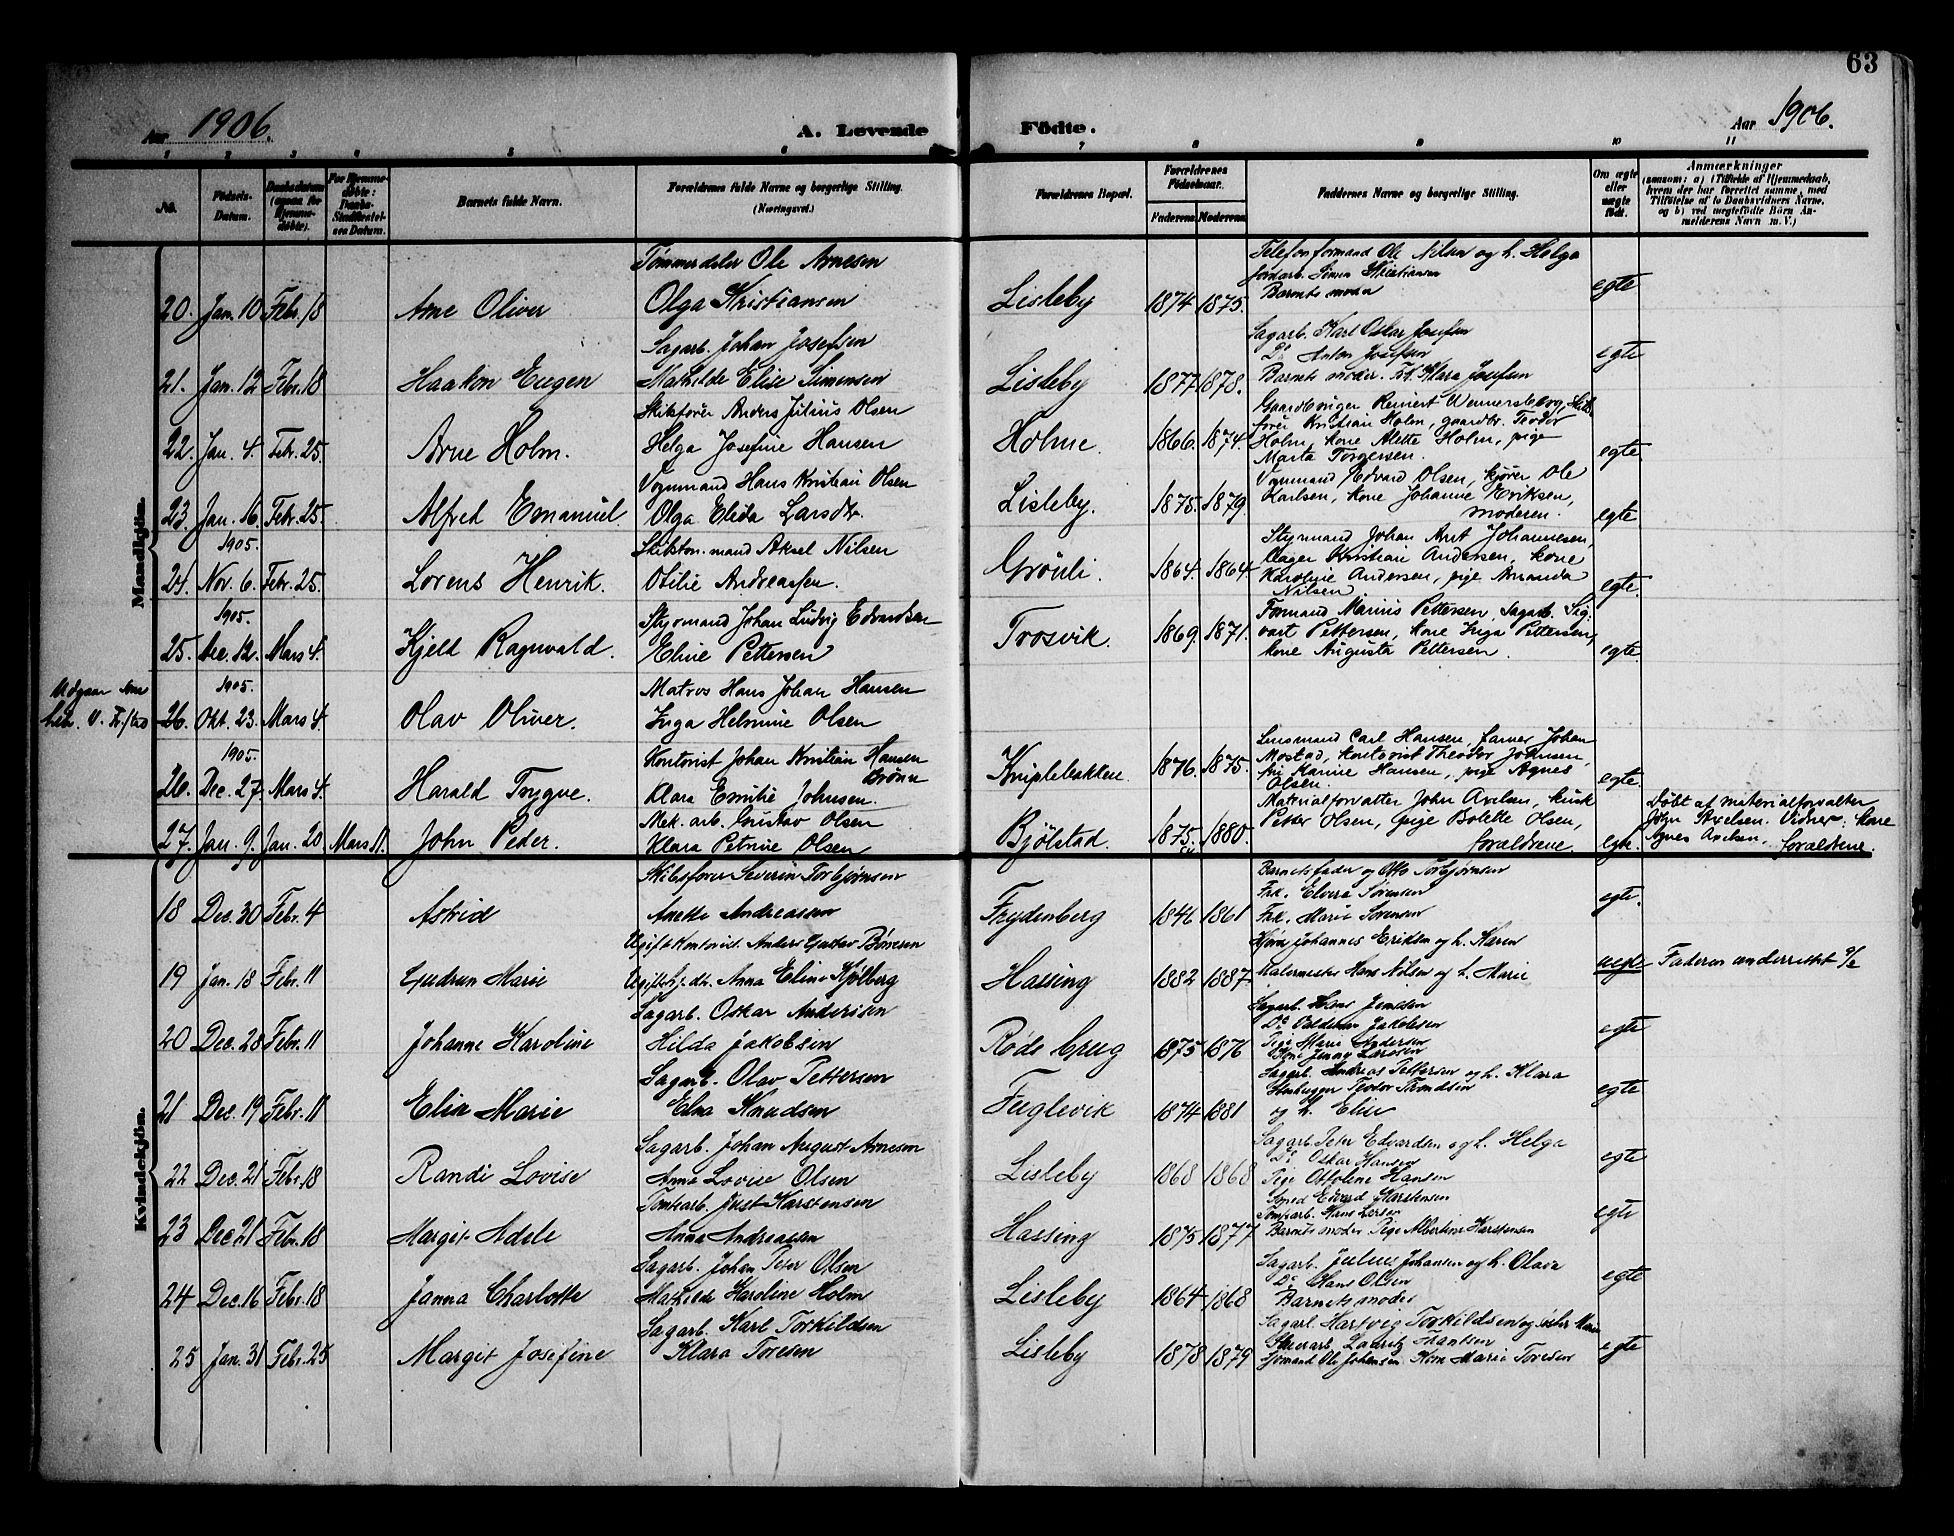 63
Aar 1906.
A. Levende
Födte.
Aar 1906.
1 2 3 4 5 6 7 8 9 10 11
No.
Födsels-Datum.
Daabsdatum (ogsaa for Hjemme-döbte).
For Hjemme-döbte: Daabs-Stadfæstel-ses Datum.
Barnets fulde Navn.
Forældrenes fulde Navne og borgerlige Stilling. (Næringsvei.)
Forældrenes Bopæl.
Forældrenes Födselsaar.
Faderens Moderens
Faddernes Navne og borgerlige Stilling.
Om ægte eller uægte födt.
Anmærkninger
(saasom: a) i Tilfælde af Hjemmedaab,
hvem der har forrettet samme, med
Tilföielse af to Daabsvidners Navne,
og b) ved uægtefödte Börn An-
melderens Navn m. V.)
Mandkjön.
Tømmerdeler Ole Arnesen
Telefonformand Ole Nilsen og h. Helga
Simen Kristiansen
20. Jan. 10 Febr. 18 Arne Oliver Olga Kristiansen Lisleby 1874 1875. Barnets moder egte
Sagarb. Johan Josefsen
Sagarb. Karl Oskar Josefsen
Do Anton Josefsen
21. Jan. 12 Febr. 18 Haakon Eugen Mathilde Elise Simensen Lisleby 1877 1878. Barnets moder. Klara Josefsen egte
Skibsfører Anders Julius Olsen
Gaardbruger Reinert Wennersborg, Skibs
fører Kristian Holm, gaardbr. Teodor
22. Jan. 4. Febr. 25. Arne Holm. Helga Josefine Hansen Holme. 1866. 1874. Holm, kone Alette Holm, pige
Marta Torgersen. egte
Vognmand Hans Kristian Olsen
Vognmand Edvard Olsen, kjører Ole
23. Jan. 16. Febr. 25. Alfred Emanuel. Olga Elida Larsdtr. Lisleby. 1875. 1879. Karlsen, kone Johanne Eriksen,
moderen. egte
1905.
Skibstøm.mand Aksel Nilsen
Styrmand Johan Ant. Johannesen,
24. Nov. 6. Febr. 25. Lorens Henrik. Otilie Andreassen. Grönli. 1864. 1864. Kristian Andersen, kone
Karoline Andersen, pige Amanda
Nilsen egte
1905.
Styrmand Johan Ludvig Edvardsen
Formand Marius Pettersen, Sagarb. Sig-
25. Dec. 12. Mars 4. Kjeld Ragnvald. Eline Pettersen Trosvik. 1869. 1871. vart Pettersen, kone Inga Pettersen,
kone Augusta Pettersen. egte
Udgaar
V. Fr.stad
1905.
Matros Hans Johan Hansen
26. Okt. 23. Mars 4. Olav Oliver. Inga Helmine Olsen
1905.
Kontorist Johan Kristian Hansen
Grønn
Lensmand Carl Hansen, farver Johan
Mostad, kontorist Theodor Johnsen,
26. Dec. 27. Mars 4. Harald Trygve. Klara Emilie Johnsen. Kniplebakken. 1876. 1875. fru Karine Hansen, pige Agnes
Olsen. egte
Mek. arb. Gustav Olsen
Materialforvalter John Axelsen, kusk
27. Jan. 9. Jan. 20 Mars 11. John Peder. Klara Petrine Olsen Bjölstad. 1875. 1880. Petter Olsen, pige Bolette Olsen,
forældrene. egte.
Døbt af materialforvalter
John Axelsen. Vidner: kone
Agnes Axelsen, forældrene.
Kvindekjön.
Skibsfører Severin Torbjørnsen
Barnets fader og Otto Torbjørnsen
Frk. Elvera Sørensen
18 Dec. 30 Febr. 4 Astrid Anette Andreassen Frydenberg 1846 1861 Frk. Marie Sørensen egte.
Ugift Kontorist. Anders Gustav Børresen
Kjører Johannes Eriksen og h. Karen
19 Jan. 18 Febr. 11 Gudrun Marie Ugift Anna Eline Kjølberg Hassing 1882 1887 Malermester Hans Nilsen og h. Marie uegte Faderen underrettet 9/2
Sagarb. Oskar Andersen
Sagarb. Hans Jensen
Do Valdemar Jakobsen
20 Dec. 28 Febr. 11 Johanne Karoline Hilda Jakobsen Røde brug 1875 1876 Pige Marie Andersen
Jenny Larssen egte
Sagarb. Olav Pettersen
Sagarb. Andreas Pettersen og h. Klara
Stenhugger Teodor Trondsen
21 Dec. 19 Febr. 11 Elin Marie Elna Knudsen Fuglevik 1874 1881 og h. Elise egte
Sagarb. Johan August Arnesen
Sagarb. Peter Edvardsen og h. Helga
Do Oskar Hansen
22 Dec. 21 Febr. 18 Randi Lovise Anna Lovise Olsen Lisleby 1868 1868 Pige Ottoline Hansen egte
Tomtearb. Just Karstensen
Smed Edvard Karstensen
Tomtearb. Hans Larsen
23 Dec 21 Febr. 18 Margit Adele Anna Andreassen Hassing 1875 1877 Barnets moder Pige Albertine Karstensen egte
Sagarb. Johan Peter Olsen
Sagarb. Julius Johansen og h. Olava
Do Hans Olsen
24 Dec. 16 Febr. 18 Janna Charlotte Mathilde Karoline Holm Lisleby 1864 1868 Barnets moder egte
Sagarb. Karl Torkildsen
Sagarb. Hartvig Torkildsen og søster Marie
Lauritz Frantsen
25 Jan. 31 Febr. 25 Margit Josefine Klara Toresen Lisleby 1878 1879 Sjømand Ole Johansen Kone Marie Toresen egte